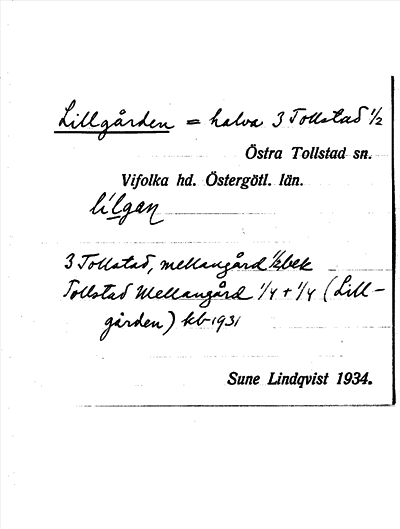 Lillgården = halva 3 Tollstad 1/2
Östra Tollstad sn.
Vifolka hd. Östergötl. län.
li`lgan
3 Tollstad, mellangård 1/2 bek
Tollstad Mellangård 1/4 + 1/4 (Lill-
gården) kb 1931
Sune Lindqvist 1934.